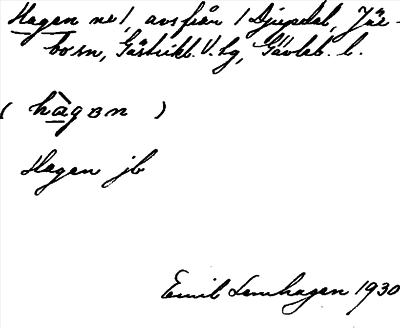 Hagen ne/, avsfrån / Djupdal, Jär-
bo sn, Gästrikl. V. tg, Gävleb. l.
( hàgɘn )
Hagen jb
Emil Lenhagen 1930